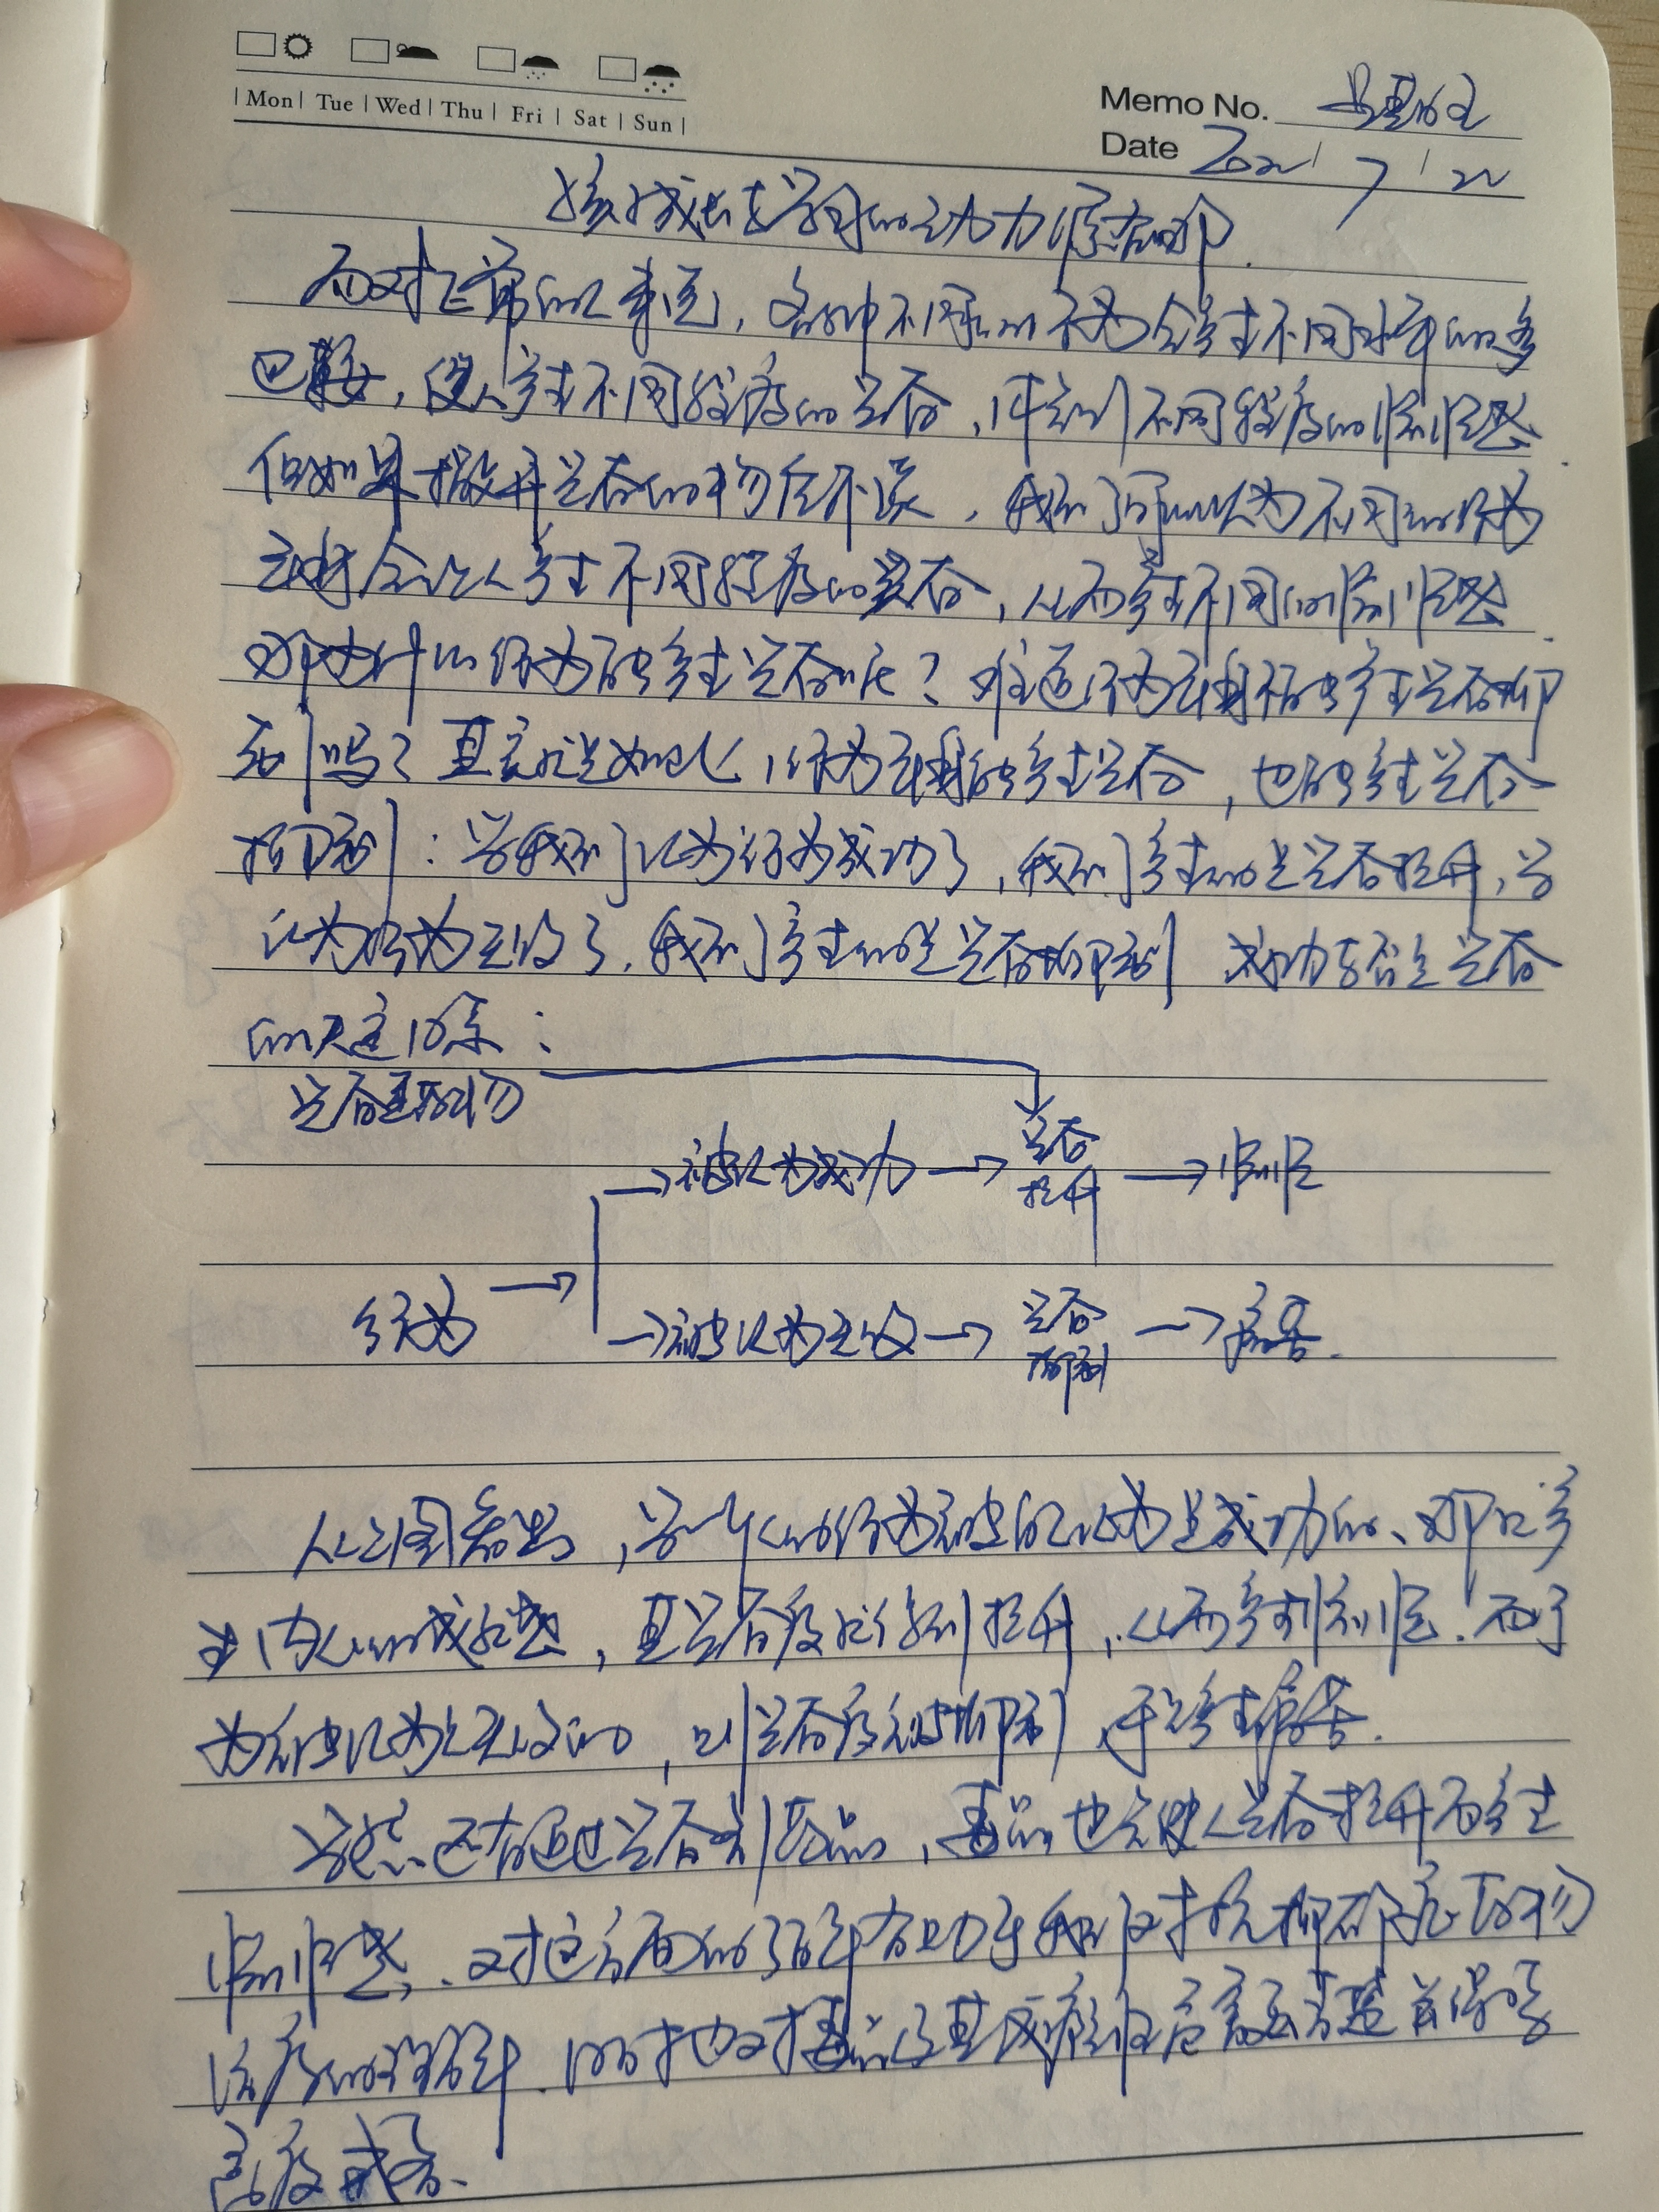 Mon Tue Wed Thu Fri Sat Sun
Memo No.
Date 2022 / 7 / 22
孩成长学习的动力
面对正常的事，各种不同的行为会产生不同水平的多
巴胺，使人产生不同程度的兴奋，体会到不同程度的愉悦感
但如果抛开兴奋的物质不谈，我们可以认为不同的行为
会让人产生不同程度的兴奋，从而产生不同的愉悦感
那为什么行为能产生兴奋呢？难道行为不能产生兴奋抑
制吗？其实就是如此，行为能产生兴奋，也能产生兴奋
抑制：当我们认为行为成功了，我们产生的是兴奋提升，当
认为行为失败了，我们产生的是兴奋抑制 成功与否是兴奋
的决定因素：
兴奋
→被认为成功→兴奋提升→愉悦
行为→
→被认为失败→兴奋抑制→痛苦.
从上图看出，当一个人的行为被认为是成功的、那么产
生内心的成就感，其兴奋度就得到提升，从而产生愉悦。而行
为被认为是失败的，则兴奋度被抑制，于是产生痛苦.
当然还有通过兴奋剂毒品，毒品也会使人兴奋提升而产生
愉悦感，对这方面的了解有助于我们对抗抑郁症药物
治疗的理解．同时也对毒品及其成瘾性危害
高度戒备．